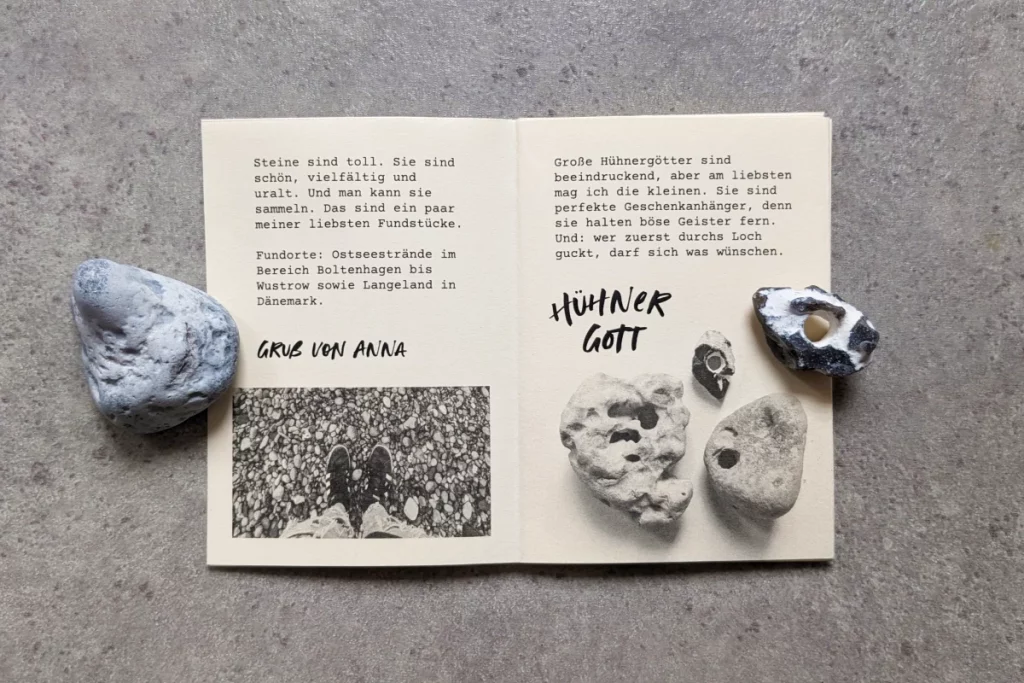 Steine sind toll. Sie sind
schön, vielfältig und
uralt. Und man kann sie
sammeln. Das sind ein paar
meiner liebsten Fundstücke.
Fundorte: Ostseestrände im
Bereich Boltenhagen bis
Wustrow sowie Langeland in
Dänemark.
GRUß VON ANNA
Große Hühnergötter sind
beeindruckend, aber am liebsten
mag ich die kleinen. Sie sind
perfekte Geschenkanhänger, denn
sie halten böse Geister fern.
Und: wer zuerst durchs Loch
guckt, darf sich was wünschen.
HÜHNER
GOTT